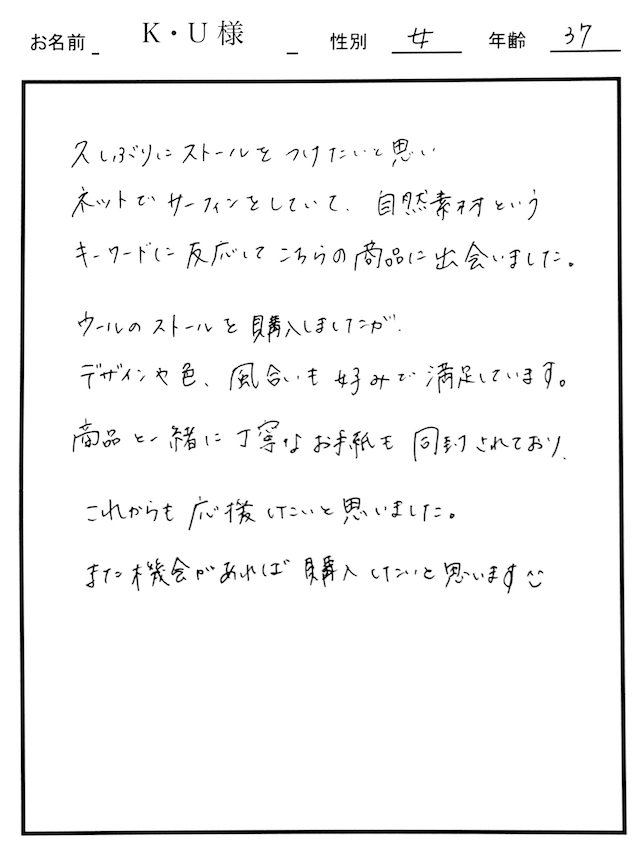 お名前 K・U様 性別 女 年齢 37
久しぶりにストールをつけたいと思い
ネットでサーフィンをしていて、自然素材という
キーワードに反応してこちらの商品に出会いました。
ウールのストールを購入しましたが、
デザインや色、風合いも好みで満足しています。
商品と一緒に丁寧なお手紙も同封されており、
これからも応援したいと思いました。
また機会があれば購入したいと思います